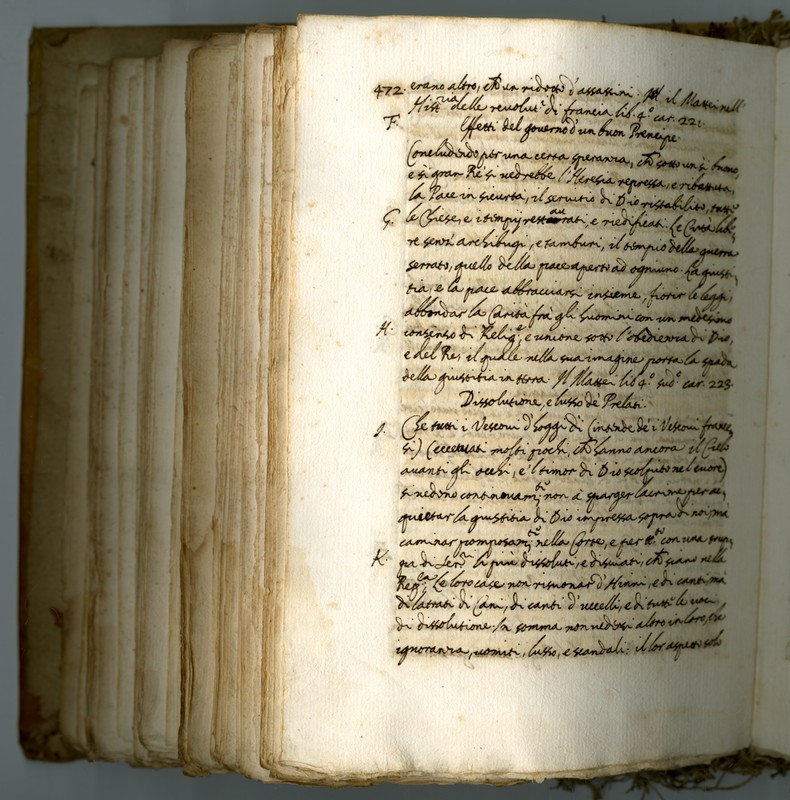 472. erano altro, ch'un ridotto d'assassini. Il Mattei nell'
Hist.ria delle revolut.i di francia lib. 4.o car. 22:
F. Effetti del governo d'un buon Prencipe.
Concludendo per una certa speranza, ch sotto un sì buono,
e sì gran Rè si vedrebbe l'Heresia repressa, e ributtata,
la Pace in sicurtà, il servitio di Dio ristabilito, tutte
G. le Chiese, e i tempij restaurati, e riedificati. Le Città libe,
re senz'archibugi, e tamburi, il tempio della guerra
serrato, quello della pace aperto ad ogniuno. La giusti,
tia, e la pace abbracciarsi insieme, fiorir le leggi,
abbondar la Carità frà gli huomini con un medesimo
H. consenso di Relig.e, e unione sotto l'obedienza di Dio,
e del Rè, il quale nella sua imagine porta la spada
della giustitia in terra. Il Mattei lib. 4.o sud.o car. 223.
Dissolutione, e lusso de' Prelati.
J. Che tutti i Vescovi d'hoggi dì (intende de' i Vescovi france,
si) (eccettuati molti pochi, ch hanno ancora il Cielo
avanti gli occhi, e 'l timor di Dio scolpito nel cuore)
si vedono continuam.te non à sparger lacrime per ac,
quietar la giustitia di Dio impressa sopra di noi, mà
caminar pomposam.te nella Corte, e per con una trup,
K. pa di Ser.ri li più dissoluti, e disviati, ch siano nella
Reg.ca Le loro case non risuonar d'Hinni, e di canti, mà
di latrati di Cani, di canti d'uccelli, e di tutte le voci
di dissolutione. In somma non vedersi altro in loro, che
ignoranza, vomiti, lusso, e scandali: il lor aspetto solo